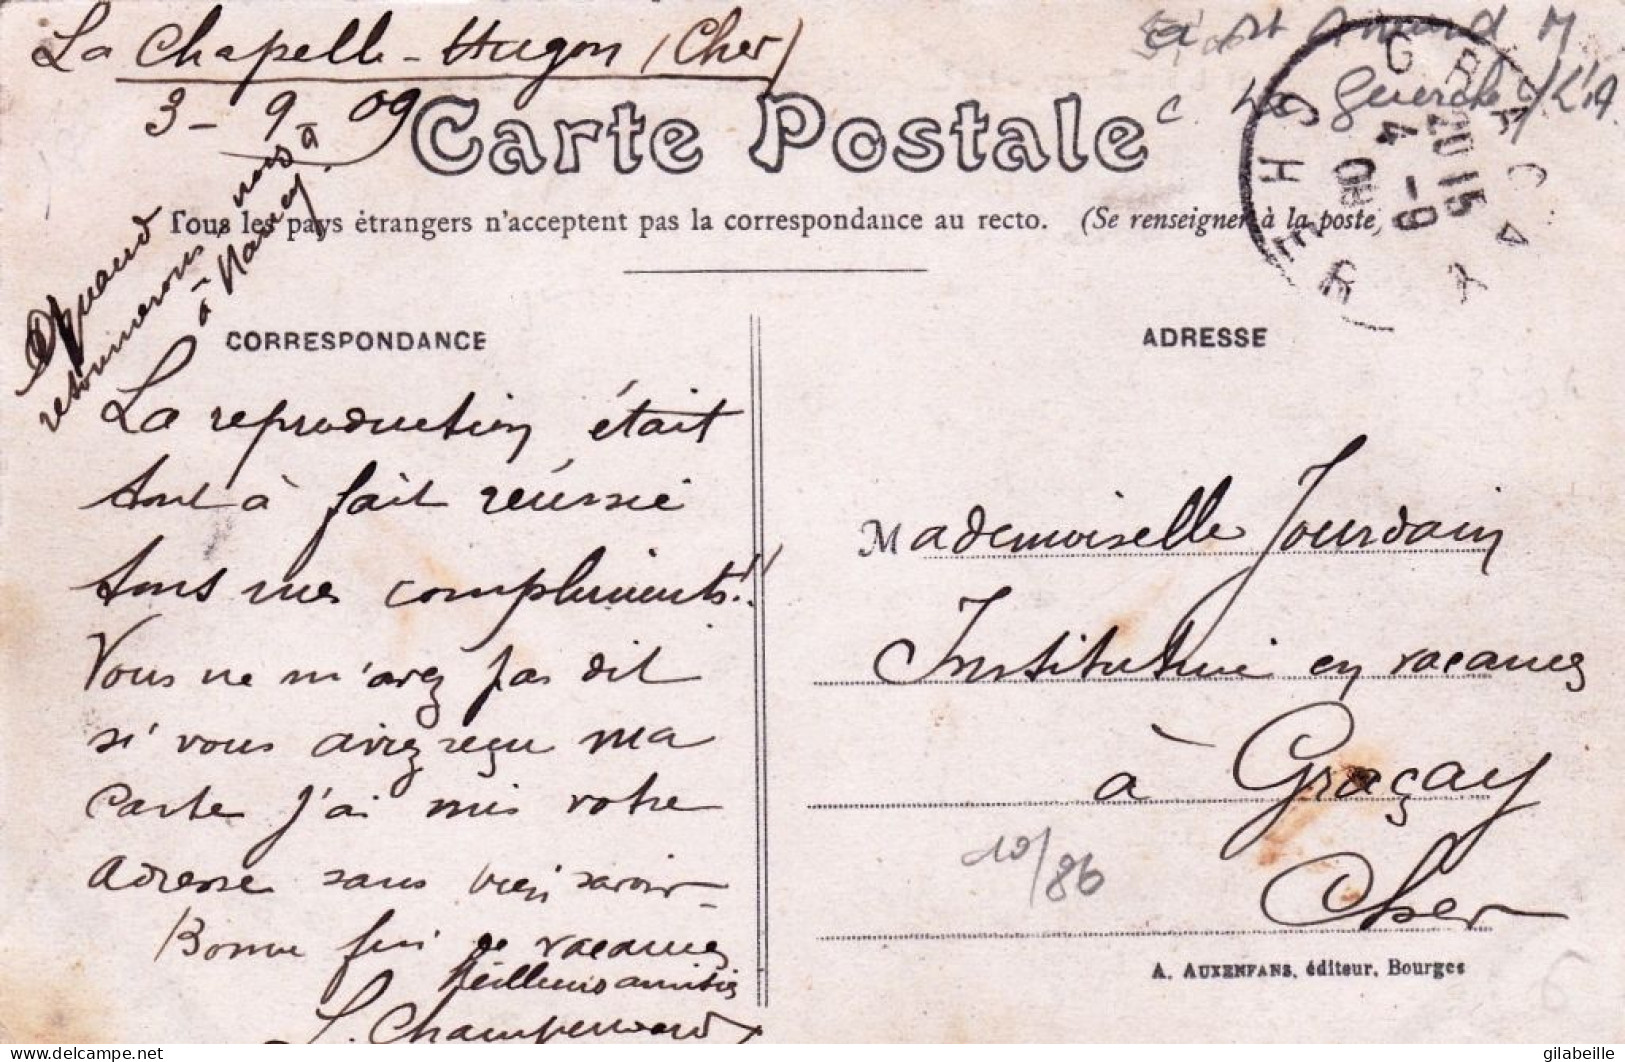 La Chapelle-Hugon (Cher)
3-9-09
St Amand M
C. La Guerche /L'A.
Carte Postale
Tous les pays étrangers n'acceptent pas la correspondance au recto. (Se renseigner à la poste)
GRACAY
20 15
4 -9
09
CHER
Quand
retournerons nous à
à Nancy.
CORRESPONDANCE
La reproduction était
tout à fait réussie
tous mes compliments!!
Vous ne m'avez pas dit
si vous aviez reçu ma
carte j'ai mis votre
adresse sans bien savoir_
Bonne fin de vacances
Meilleures amitiés
ADRESSE
Mademoiselle Jourdain
Institutrice en vacances
à Graçay
Cher
10/86
A. AUXENFANS, éditeur, Bourges
6
gilabeille